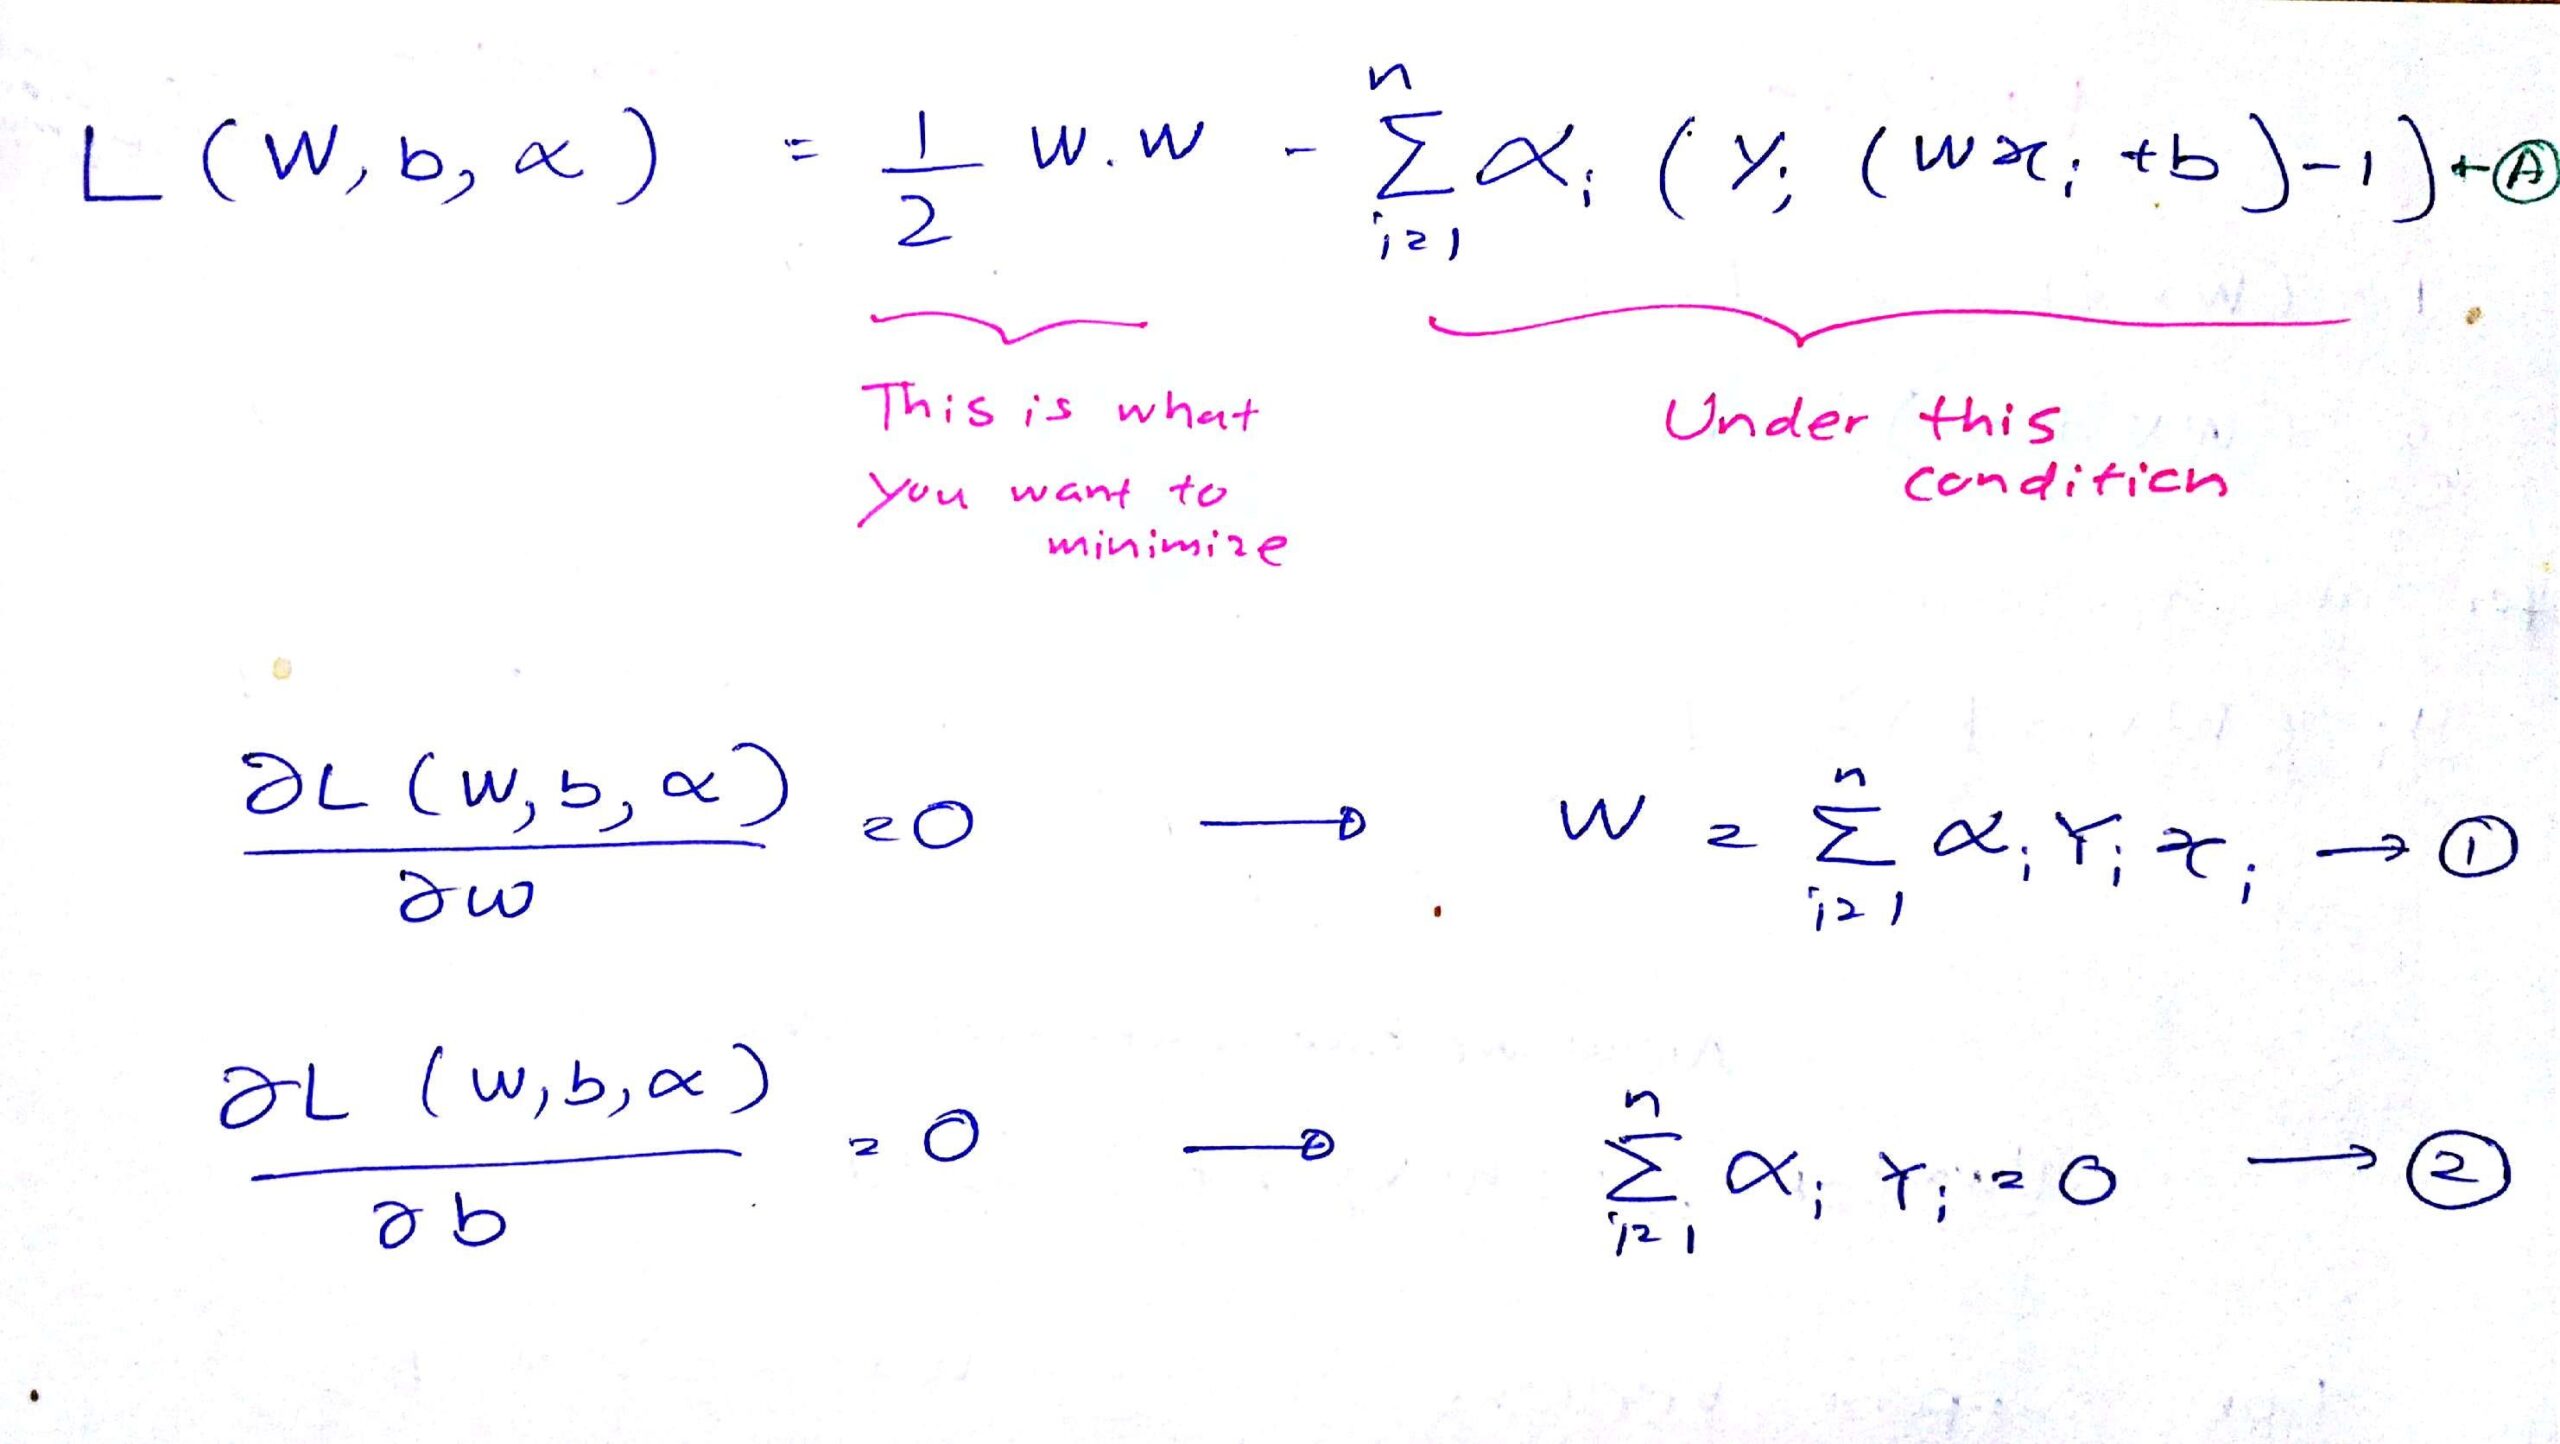 L (W, b, α) = 1/2 W.W - n∑i=1 αi (Yi (Wxi +b)-1) → Ⓐ
This is what
you want to
minimize
Under this
condition
∂L (W, b, α) / ∂w = 0 → W = n∑i=1 αi Yi xi → ①
∂L (W, b, α) / ∂b = 0 → n∑i=1 αi Yi = 0 → ②